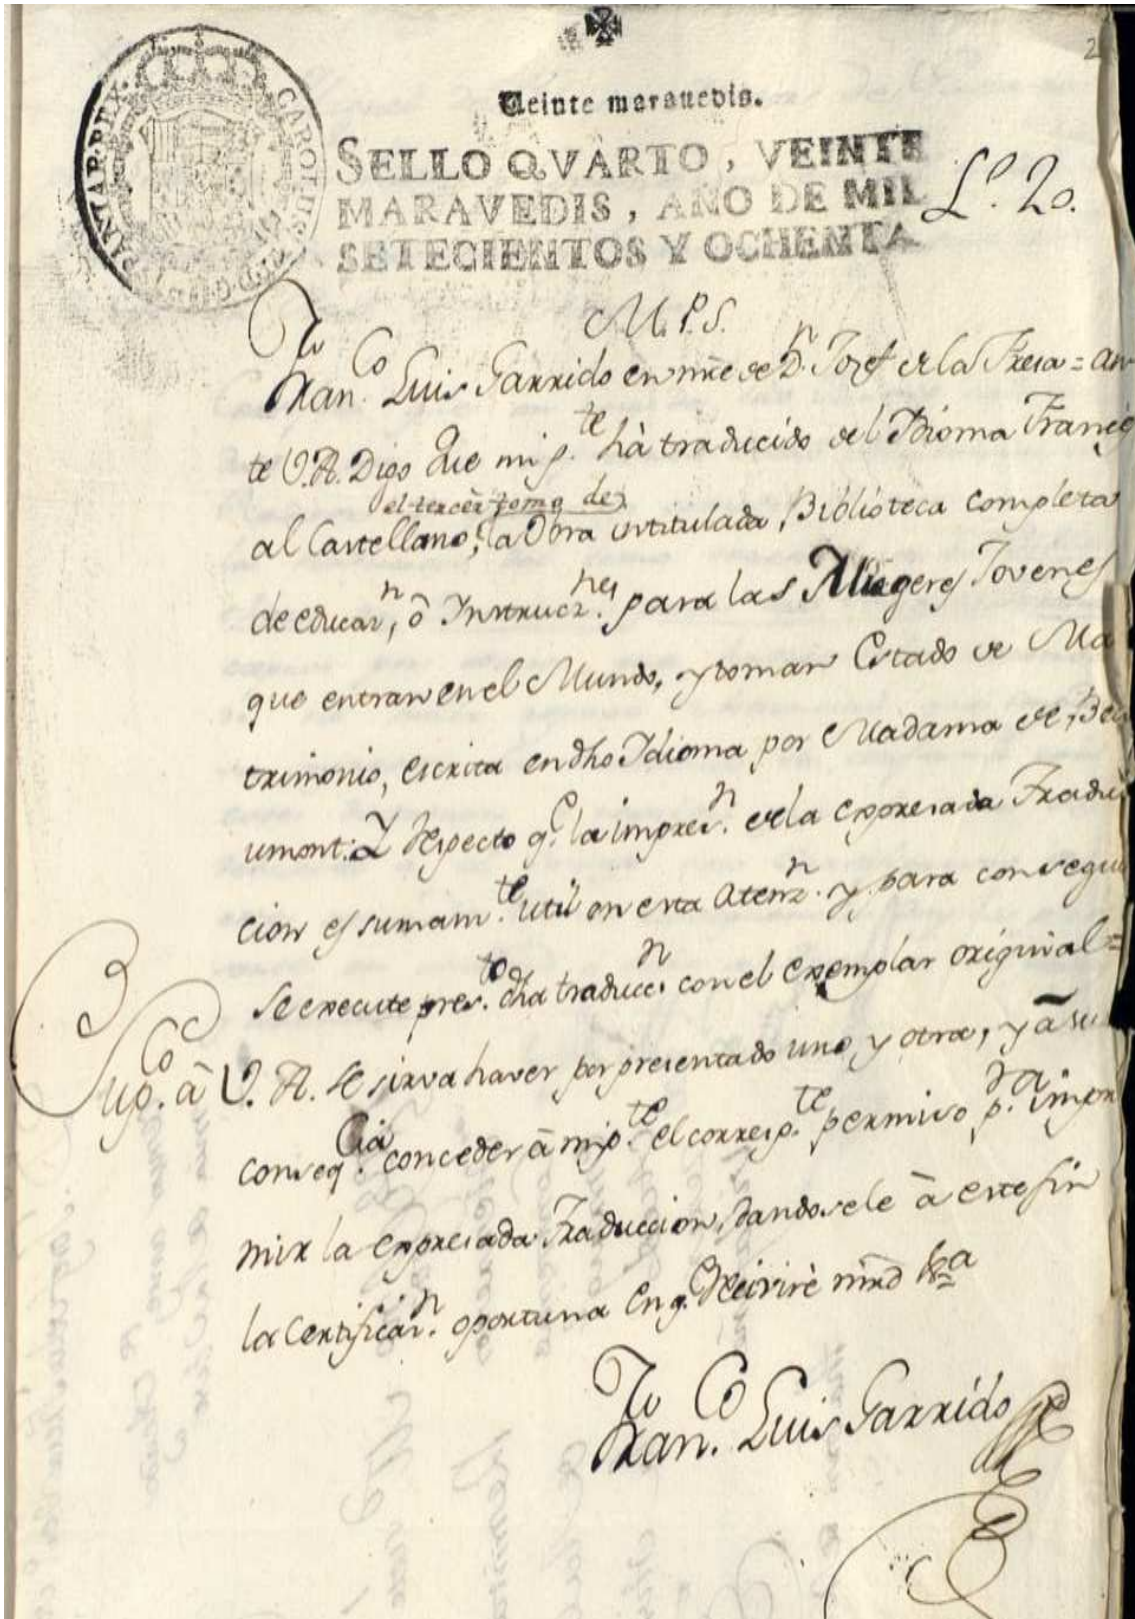 2
Veinte maravedis.
CAROLUS III D G HISPANIAR REX
SELLO QVARTO, VEINTE
MARAVEDIS, AÑO DE MIL
SETECIENTOS Y OCHENTA
Lº. 20.
M.P.S.
Franco. Luis Garrido en nre de Dn. Josef de la Fresa = an
te V.A. Digo Que mi pte. hà traducido del Idioma Frances
el tercèr tomo de
al Castellano, la Obra intitulada, Biblioteca completa
de educazn, ô Instrucznes. para las Mugeres Jovenes
que entran en el Mundo, y toman Estado de Ma
trimonio, escrita en dho Idioma por Madama de, Bea
umont: Y Respecto qe. la impresn. de la expresada Traduc
cion es sumamte. util en esta Atenzn. y para conseguir
se execute presto. dha traduccn. con el exemplar original =
Suppco. â V. A. se sirva haver por presentado uno y otra, y â su
conseqcia. conceder â mi pte. el correspte. permiso pa. impri
mir la expresada Traduccion, dandosele â este fin
la Certificazn. oportuna en q. Reivirè mrd &a
Franco. Luis Garrido